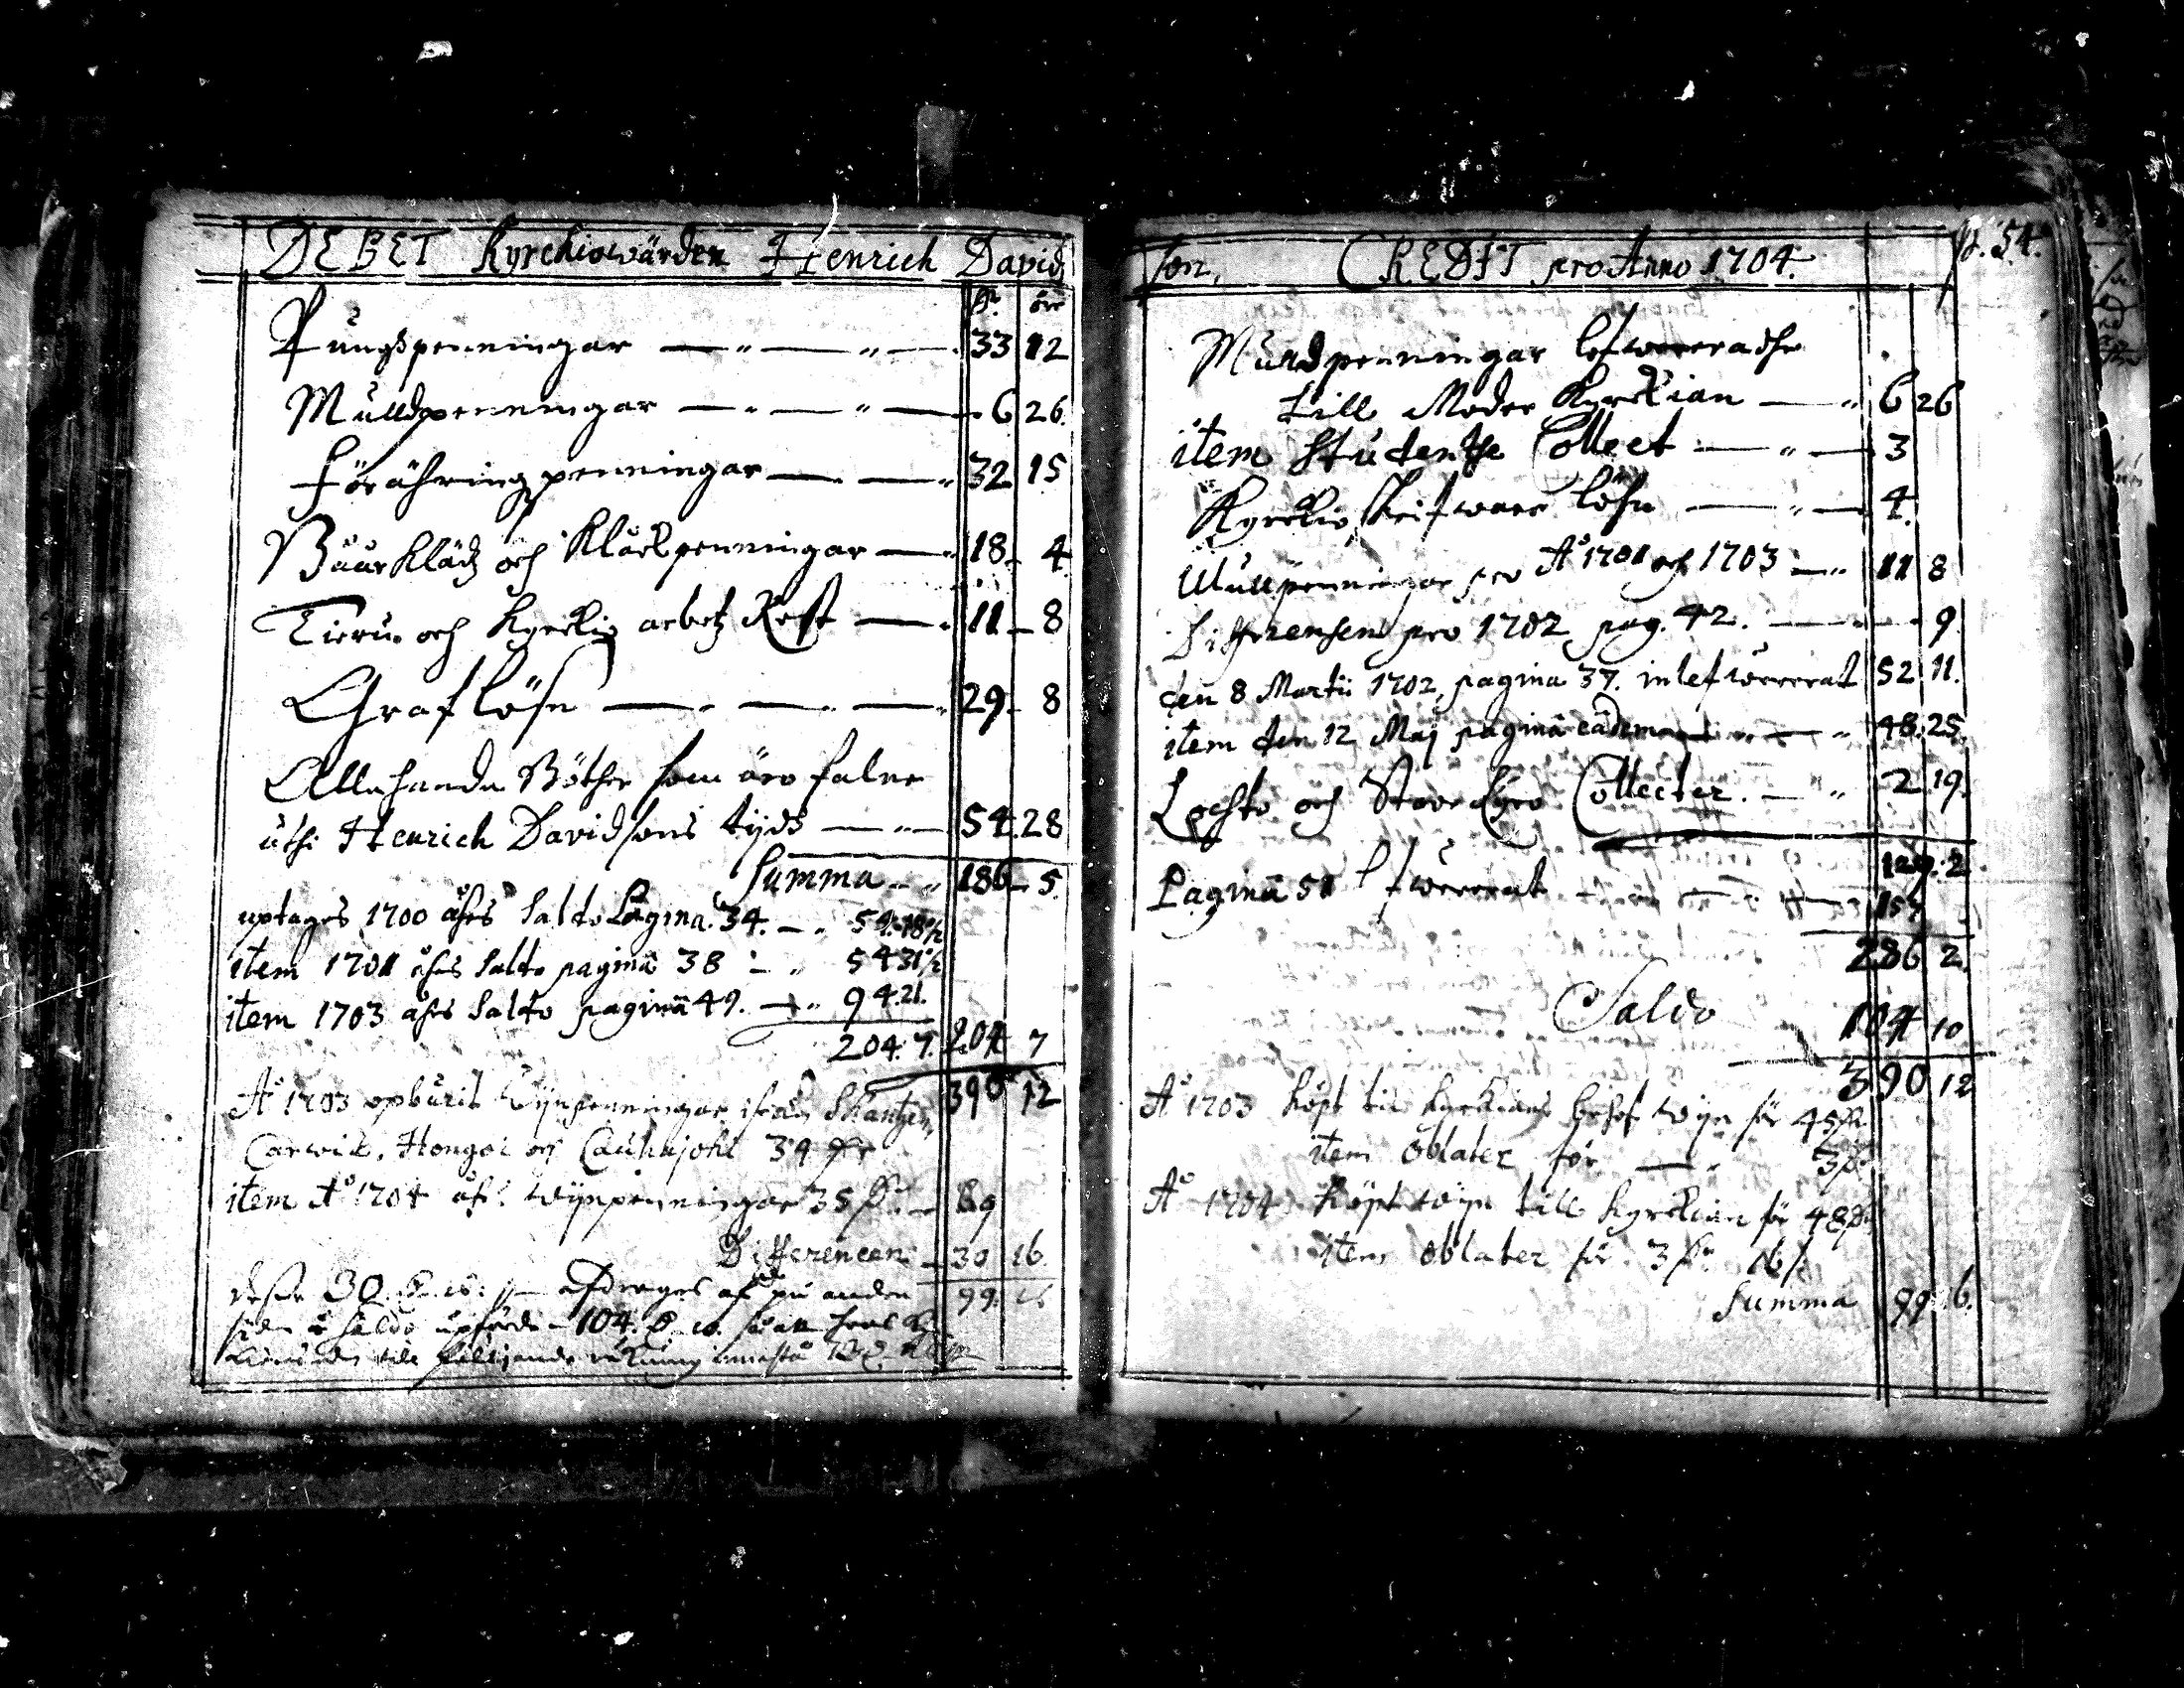 DEBET Kyrckiowärden Henrich David
Pr. öre
Pungspenningar 33 12
Mulldpenningar 6 26
Förährings penningar 32 15
Båår Klädz och Klåckpenningar 18 4
Tieru och Kyrckio arbetz Rest 11 8
Graf lösn 29 8
Allahanda Böther som äro falne
uthi Henrich Davidsons tijds 54 28
Summa 186 5
uptages 1700 åhrs Saldo Pagina 34. 54. 18½
item 1701 åhrs Saldo paginâ 38 54 31½
item 1703 åhrs Saldo paginâ 49. 94. 21.
204. 7. 204 7
390 12
A° 1703 upburit Wijnpenningar ifrån
Carwia, Hongoi och Cauhajoki 34
item A° 1704 Wijnpenningar 35 69
Differencen 30 16
desse 30 afdrages af på andra 99
sidan Saldo upförde 104.
till fölljande räkning
son. CREDIT pro Anno 1704. p. 54.
Mulldpenningar lefwereradhe
till Moder Kyrckian 6 26
item Studentse Collect 3
Kyrckio Skrifware löhn 4.
Mullpenningar pro A° 1701 och 1703 11 8
Differensen pro 1702 pag. 42. 9
den 8 Martii 1702, pagina 37. inlefwererat 52 11.
item den 12 Maj paginâ eâdem 48. 25.
Lochto och Stoor Kyro Collecter. 2 19.
129. 2
Paginâ 51 lefwererat 157
286 2.
Saldo 104 10
390 12
A° 1703 Köpt till Kyrckians behof wijn för 45
item Oblater för 3
A° 1704 Köpt wijn till Kyrckian för 48
item Oblater för 3 16
Summa 99 16.